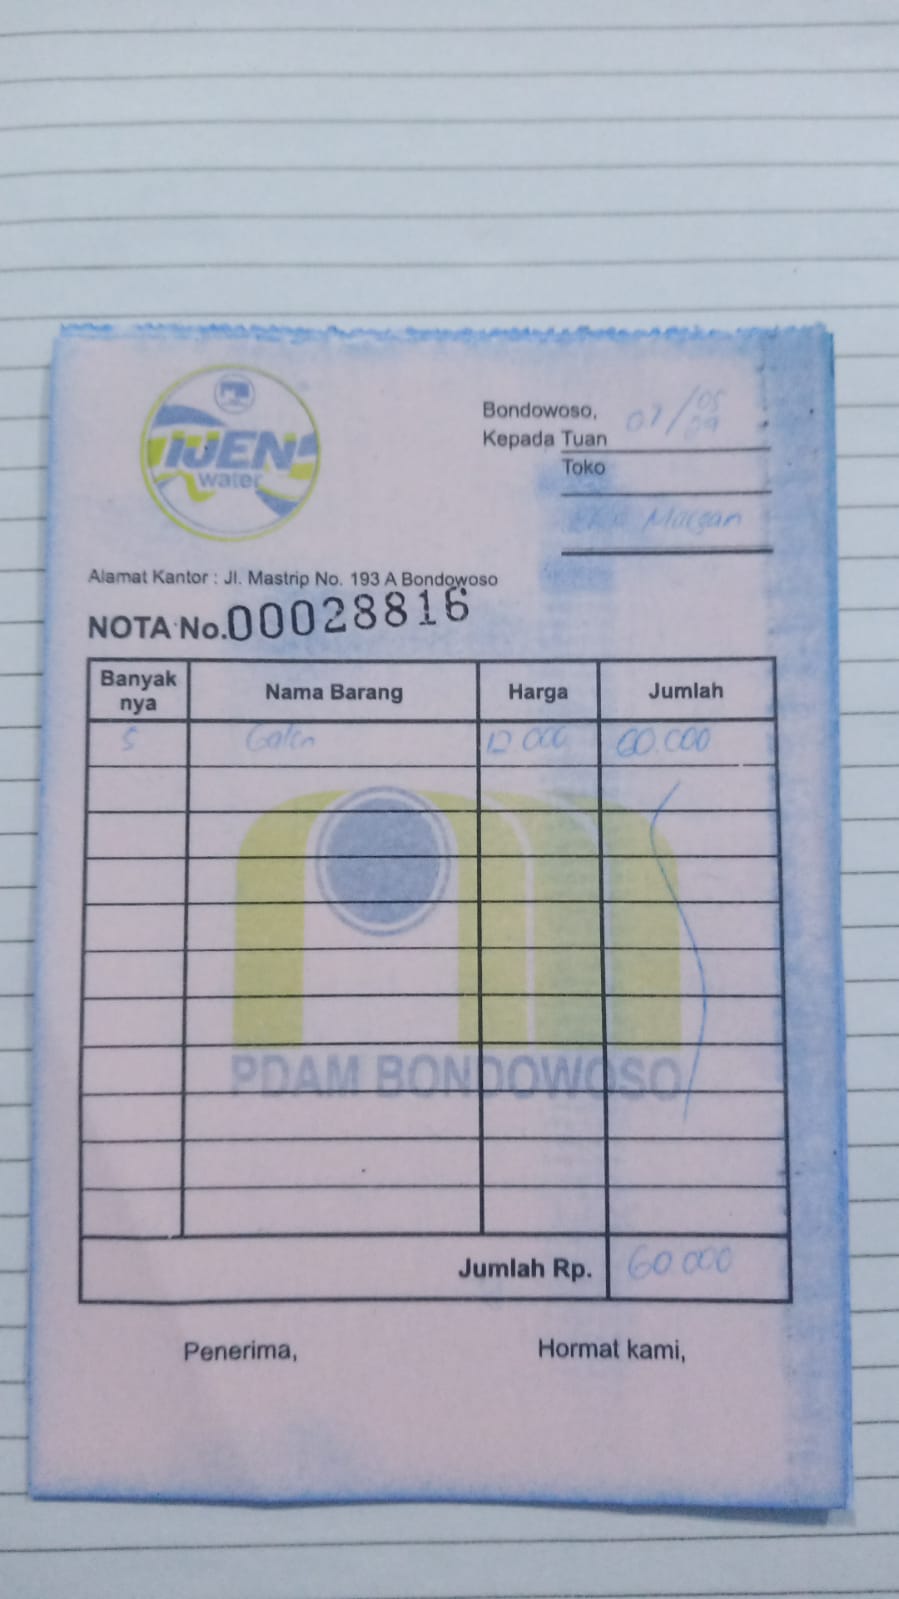 IJEN
water
Bondowoso,
Kepada Tuan
Toko
Margan
Alamat Kantor : Jl. Mastrip No. 193 A Bondowoso
NOTA No. 00028816
Banyak nya Nama Barang Harga Jumlah
5 Galon 12 000 60.000
PDAM BONDOWOSO
Jumlah Rp. 60.000
Penerima, Hormat kami,